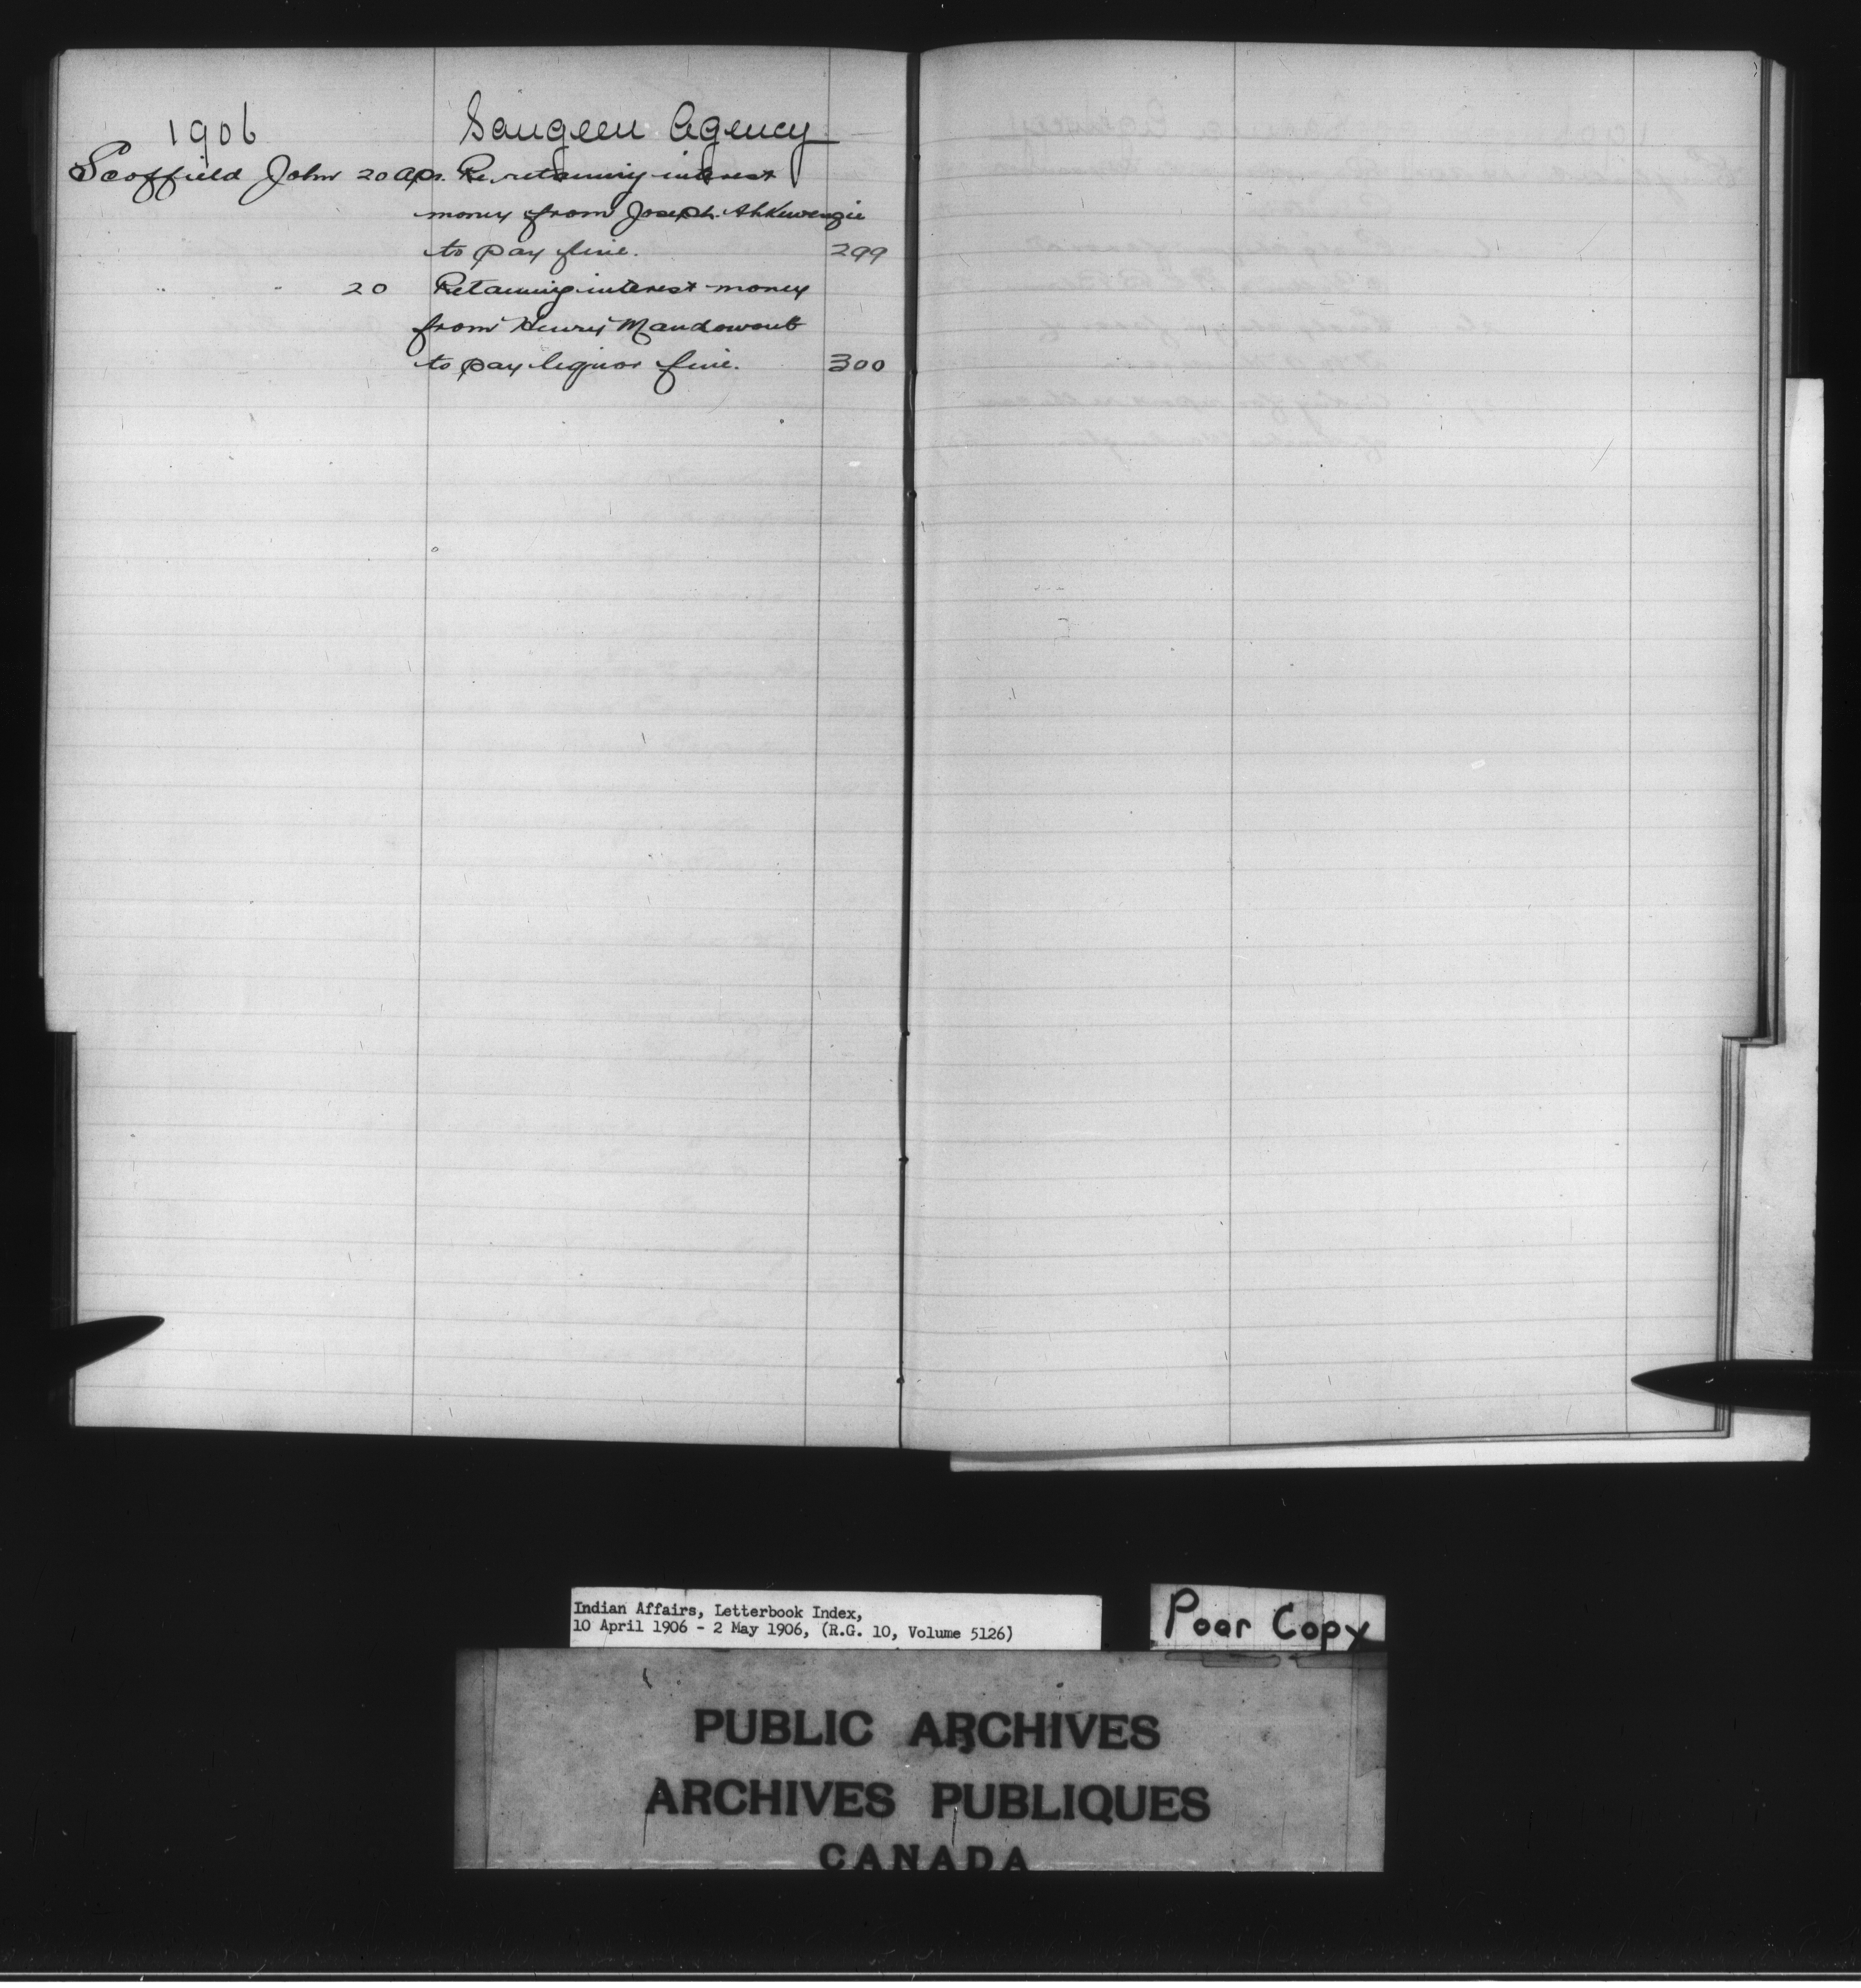 1906 Saugeen Agency
Scoffield John 20 Apr. Re. retaining interest
money from Joseph Ahkewenzie
to pay fine. 299
" " 20 Retaining interest money
from Henry Mandowoub
to pay liquor fine. 300
Indian Affairs, Letterbook Index,
10 April 1906 - 2 May 1906, (R.G. 10, Volume 5126)
Poor Copy
PUBLIC ARCHIVES
ARCHIVES PUBLIQUES
CANADA